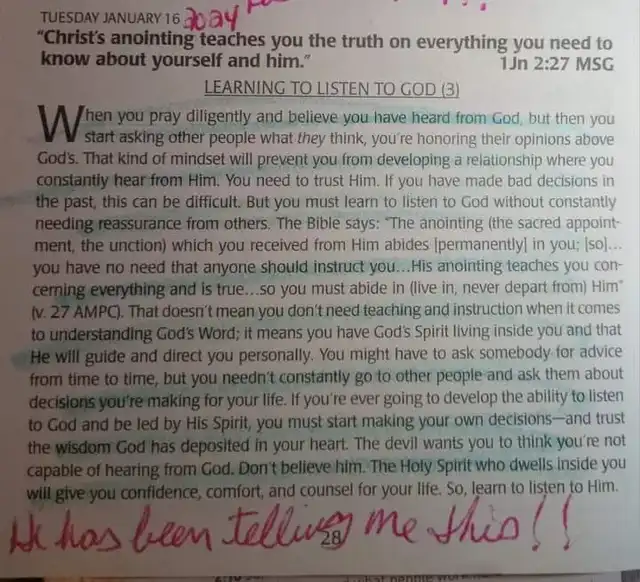 TUESDAY JANUARY 16 2024
"Christ's anointing teaches you the truth on everything you need to
know about yourself and him." 1Jn 2:27 MSG
LEARNING TO LISTEN TO GOD (3)
When you pray diligently and believe you have heard from God, but then you
start asking other people what they think, you're honoring their opinions above
God's. That kind of mindset will prevent you from developing a relationship where you
constantly hear from Him. You need to trust Him. If you have made bad decisions in
the past, this can be difficult. But you must learn to listen to God without constantly
needing reassurance from others. The Bible says: "The anointing (the sacred appoint-
ment, the unction) which you received from Him abides |permanently| in you; |so|...
you have no need that anyone should instruct you...His anointing teaches you con-
cerning everything and is true...so you must abide in (live in, never depart from) Him"
(v. 27 AMPC). That doesn't mean you don't need teaching and instruction when it comes
to understanding God's Word; it means you have God's Spirit living inside you and that
He will guide and direct you personally. You might have to ask somebody for advice
from time to time, but you needn't constantly go to other people and ask them about
decisions you're making for your life. If you're ever going to develop the ability to listen
to God and be led by His Spirit, you must start making your own decisions—and trust
the wisdom God has deposited in your heart. The devil wants you to think you're not
capable of hearing from God. Don't believe him. The Holy Spirit who dwells inside you
will give you confidence, comfort, and counsel for your life. So, learn to listen to Him.
He has been telling me this!!
28